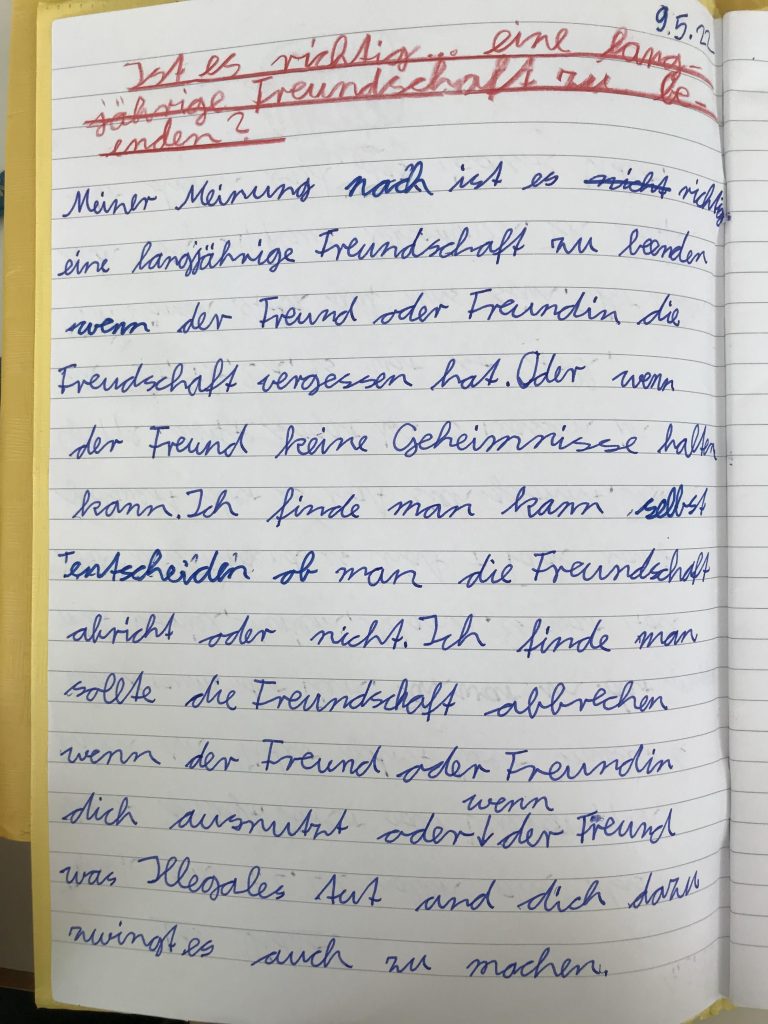 9.5.22
Ist es richtig... eine lang-
jährige Freundschaft zu be-
enden?
Meiner Meinung nach ist es nicht richtig
eine langjährige Freundschaft zu beenden
wenn der Freund oder Freundin die
Freudschaft vergessen hat. Oder wenn
der Freund keine Geheimnisse halten
kann. Ich finde man kann selbst
entscheiden ob man die Freundschaft
abricht oder nicht. Ich finde man
sollte die Freundschaft abbrechen
wenn der Freund oder Freundin
wenn
dich ausnutzt oder ↓ der Freund
was Illegales tut und dich dazu
zwingt es auch zu machen.